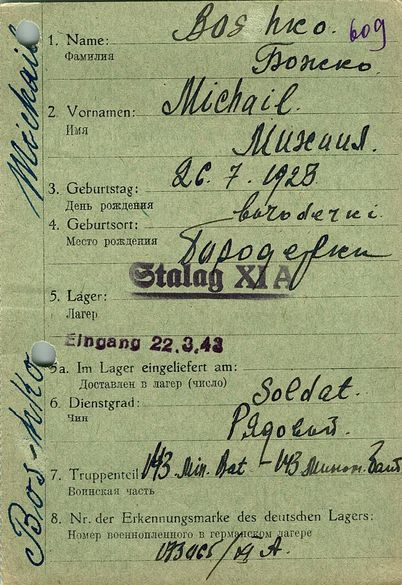 1. Name: Bos hko. 609
Фамилия Божко.
2. Vornamen: Michail.
Имя Михаил.
3. Geburtstag: 26. 7. 1923
День рождения
4. Geburtsort:
Место рождения
Stalag XI A
5. Lager:
Лагерь
Eingang 22.3.43
5a. Im Lager eingeliefert am:
Доставлен в лагерь (число)
6. Dienstgrad: Soldat.
Чин Рядовой.
7. Truppenteil 143 Min. Bat - 143 Мином. Бат
Воинская часть
8. Nr. der Erkennungsmarke des deutschen Lagers:
Номер военнопленного в германском лагере
Michail
Bos-hko